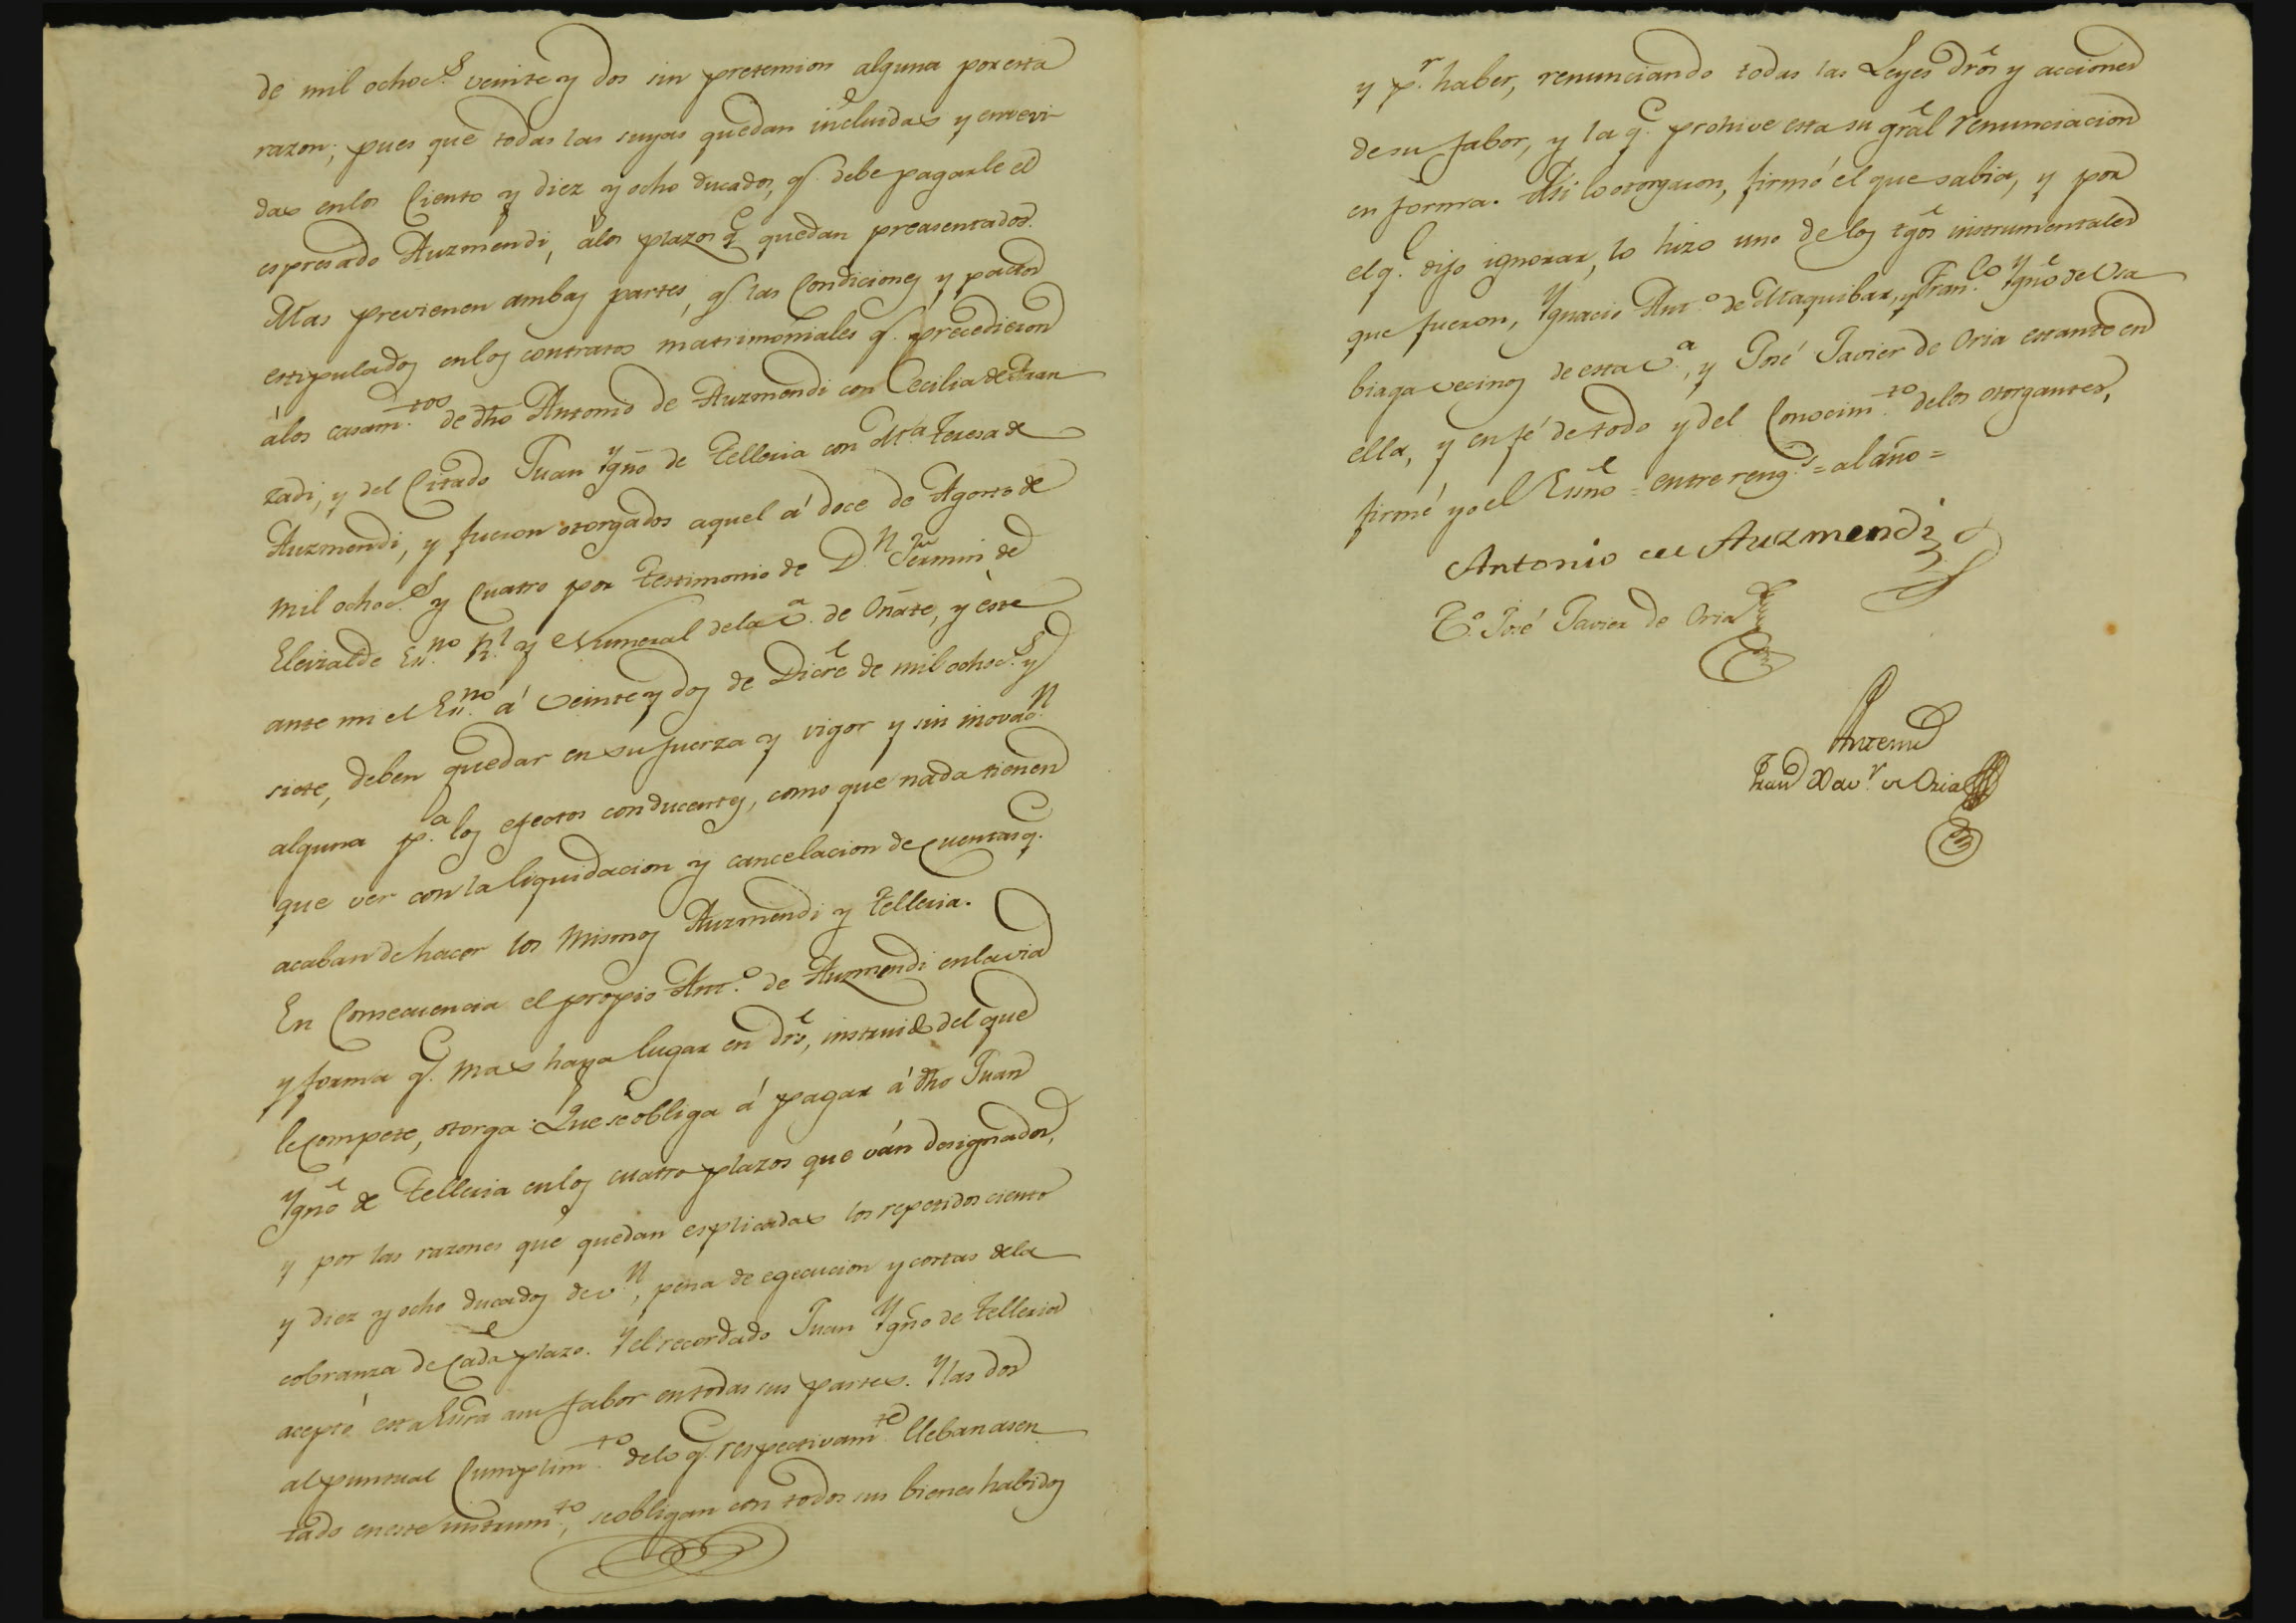 de mil ochoc.s veinte y dos sin pretension alguna por esta
razon; pues que todas las suyas quedan incluidas y embevi-
das en los Ciento y diez y ocho ducados, q.e debe pagarle el
espresado Auzmendi, á los plazos q.e quedan preasentados.
Mas previenen ambas partes, q.e las Condiciones y pactos
estipulados en los contratos matrimoniales q.e precedieron
á los casam.tos de dho Antonio de Auzmendi con Cecilia de
zadi, y del Citado Juan Ygno de Telleria con M.a Teresa de
Auzmendi, y fueron otorgados aquel á doce de Agosto de
mil ochoc.s y Cuatro por testimonio de D.n Fermin de
Eleizalde Es.no R.l y Numeral de la v.a de Oñate, y éste
ante mi el Es.no á veinte y dos de Dicre de mil ochoc.s y
siete, deben quedar en su fuerza y vigor y sin inovac.n
alguna p.a los efectos conducentes, como que nada tienen
que ver con la liquidacion y cancelacion de Cuentas q.e
acaban de hacer los mismos Auzmendi y Telleria.
En Consecuencia el propio Ant.o de Auzmendi en la via
y forma q.e mas haya lugar en dro, instruido del que
le Compete, otorga: Que se obliga á pagar á dho Juan
Ygno de Telleria en los cuatro plazos que ván designados,
y por las razones que quedan esplicadas los repetidos ciento
y diez y ocho ducados de v.n, pena de egecucion y costas de la
cobranza de Cada plazo. Y el recordado Juan Ygno de Telleria
aceptó esta Esra a su fabor en todas sus partes. Y las dos
al puntual Cumplim.to de lo q.e respectivam.te lleban asen
tado en este instrum.to, se obligan con todos sus bienes habidos
y p.r haber, renunciando todas las Leyes dros y acciones
de su fabor, y la q.e prohive esta su gral renunciacion
en forma. Asi lo otorgaron, firmó el que sabia, y por
el q.e dijo ignorar, lo hizo uno de los tgos instrumentales
que fueron, Ygnacio Ant.o de Maquibar, y Fran.co Ygno de Usa
biaga vecinos de esta v.a, y José Javier de Oria estante en
ella, y en fé de todo y del Conocim.to de los otorgantes,
firmé yo el Esno = entre reng.s = al año =
Antonio de Auzmendi
T.o José Javier de Oria
Ante mi
Juan Xav.r de Oria